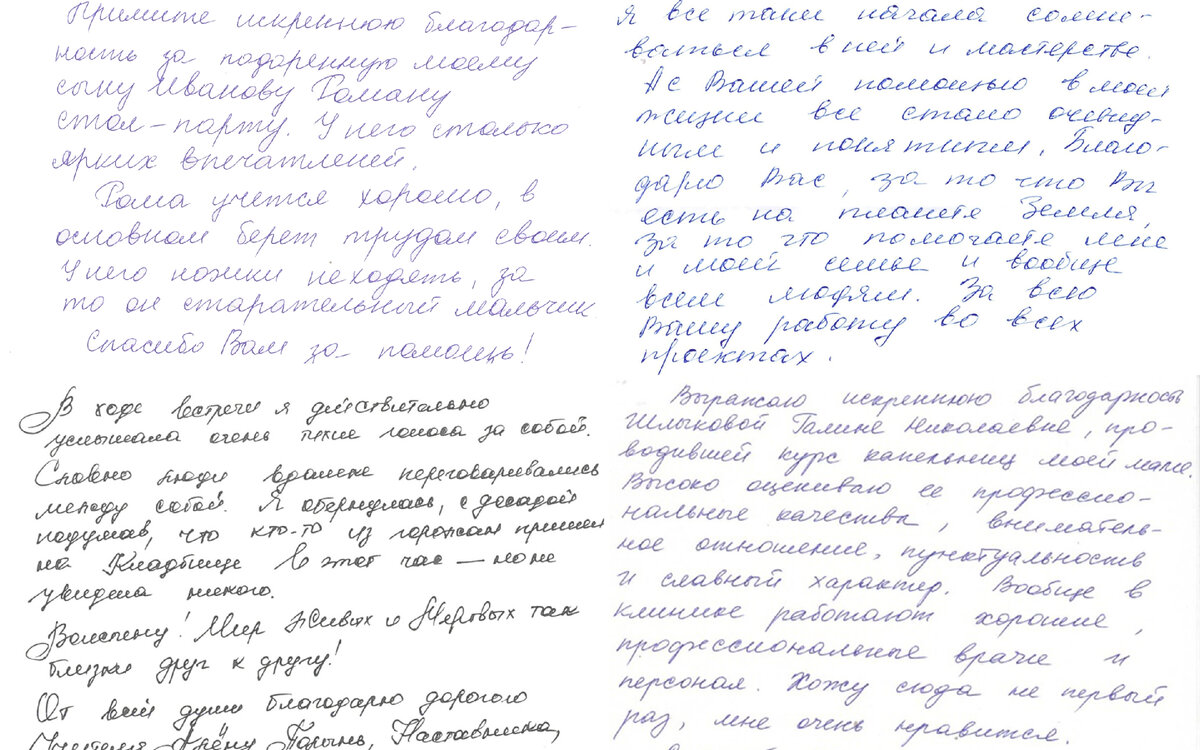 Примите искреннюю благодар-
ность за подаренную моему
сыну Иванову Роману
стол-парту. У него столько
ярких впечатлений.
Рома учется хорошо, в
основном берет трудом своим.
У него ножки не ходять, за
то он старательный мальчик
Спасибо Вам за помощь!
Я все таки начала сомне-
ваться в ней и мастерстве.
А с Вашей помощью в моей
жизни все стало очевид-
ным и понятным. Благо-
дарю Вас, за то что Вы
есть на планете Земля,
За то что помогаете мне
и моей семье и вообще
всем людям. За всю
Вашу работу во всех
проектах.
В ходе встречи я действительно
услышала очень тихие голоса за собой.
Словно люди вдалеке переговаривались
между собой. Я обернулась, с досадой
подумав, что кто-то из горожан пришел
на Кладбище в этот час — но не
увидела никого.
Воистину! Мир Живых и Мертвых так
близки друг к другу!
От всей души благодарю дорогого
Учителя Наставника,
Выражаю искреннюю благодарность
Шлыковой Галине Николаевне, про-
водившей курс капельниц моей маме.
Высоко оцениваю ее профессио-
нальные качества, вниматель-
ное отношение, пунктуальность
и славный характер. Вообще в
клинике работают хорошие,
профессиональные врачи и
персонал. Хожу сюда не первый
раз, мне очень нравится.